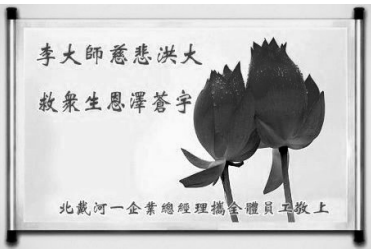 李大師慈悲洪大
救衆生恩澤蒼宇
北戴河一企業總經理攜全體員工敬上